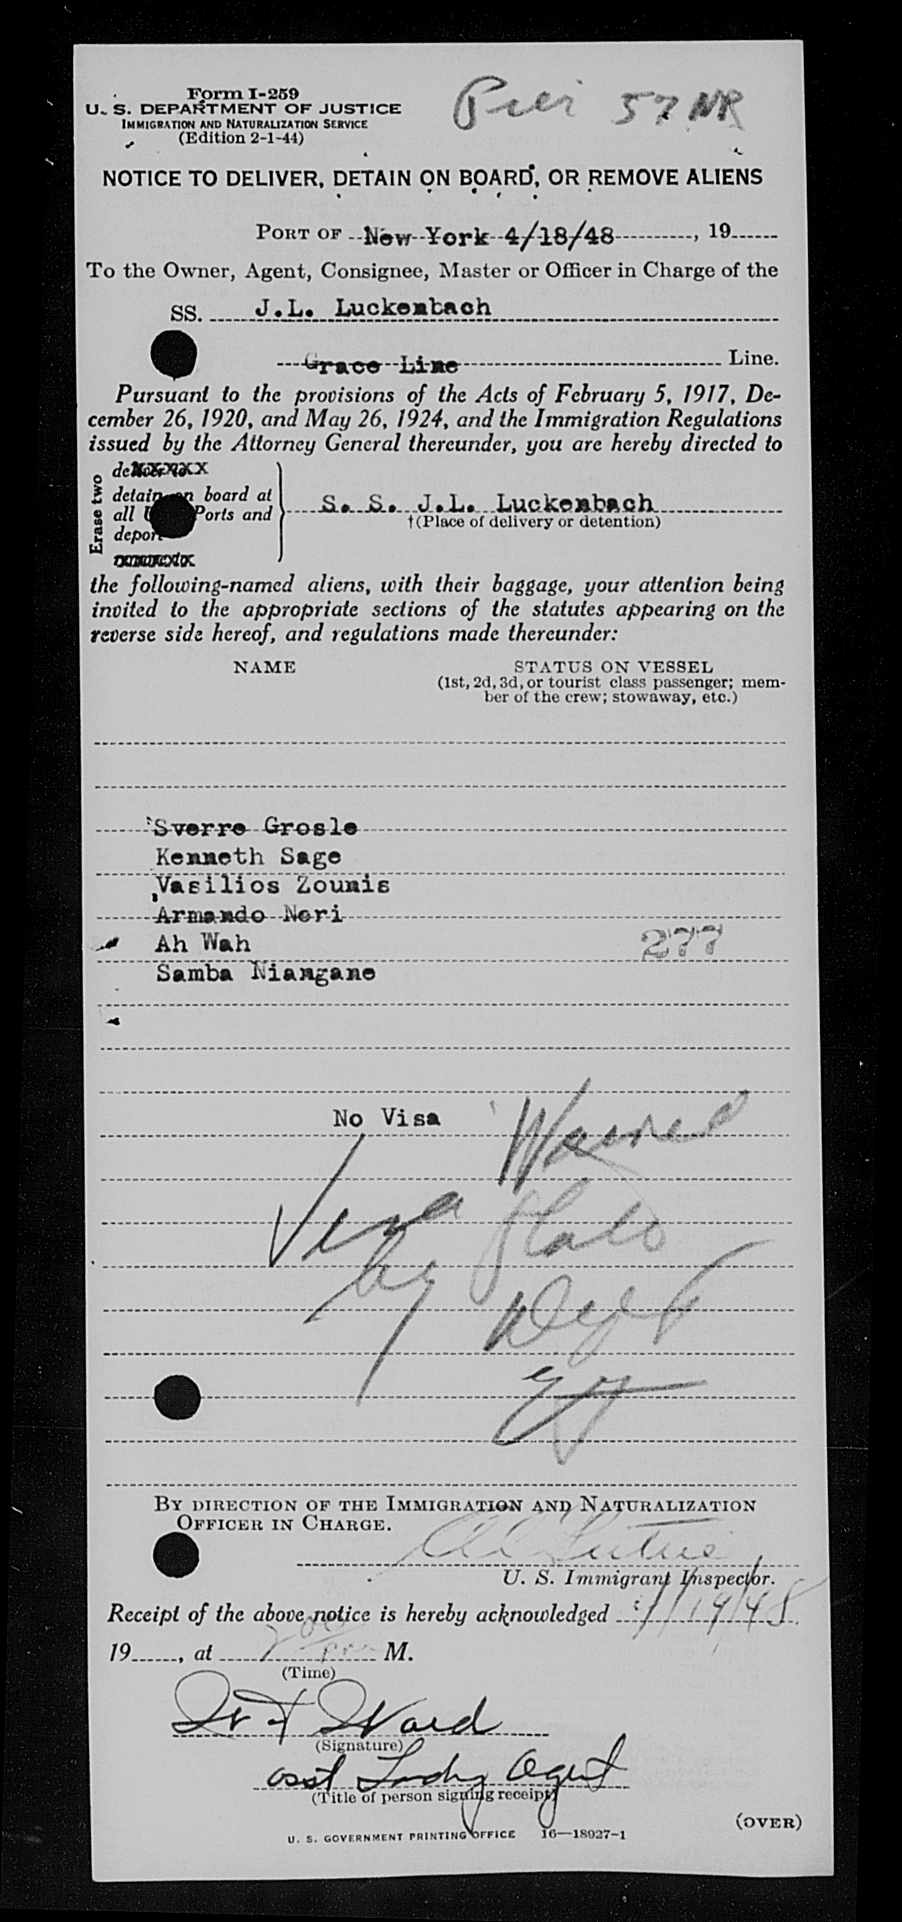 Form I-259
U. S. DEPARTMENT OF JUSTICE
IMMIGRATION AND NATURALIZATION SERVICE
(Edition 2-1-44)
Pier 57 NR
NOTICE TO DELIVER, DETAIN ON BOARD, OR REMOVE ALIENS
PORT OF New York 4/18/48, 19
To the Owner, Agent, Consignee, Master or Officer in Charge of the
SS. J.L. Luckenbach
Grace Line Line.
Pursuant to the provisions of the Acts of February 5, 1917, De-
cember 26, 1920, and May 26, 1924, and the Immigration Regulations
issued by the Attorney General thereunder, you are hereby directed to
Erase two
detain on board at
all Ports and
S. S. J.L. Luckenbach
†(Place of delivery or detention)
the following-named aliens, with their baggage, your attention being
invited to the appropriate sections of the statutes appearing on the
reverse side hereof, and regulations made thereunder:
NAME STATUS ON VESSEL
(1st, 2d, 3d, or tourist class passenger; mem-
ber of the crew; stowaway, etc.)
Sverre Grosle
Kenneth Sage
Vasilios Zounis
Armando Neri
Ah Wah 277
Samba Niangane
No Visa
Visa Waived
by State
Dept
BY DIRECTION OF THE IMMIGRATION AND NATURALIZATION
OFFICER IN CHARGE.
U. S. Immigrant Inspector.
Receipt of the above notice is hereby acknowledged 19/48
19, at M.
(Time)
Ward
(Signature)
asst Agent
(Title of person signing receipt)
U. S. GOVERNMENT PRINTING OFFICE 16—18927-1
(OVER)